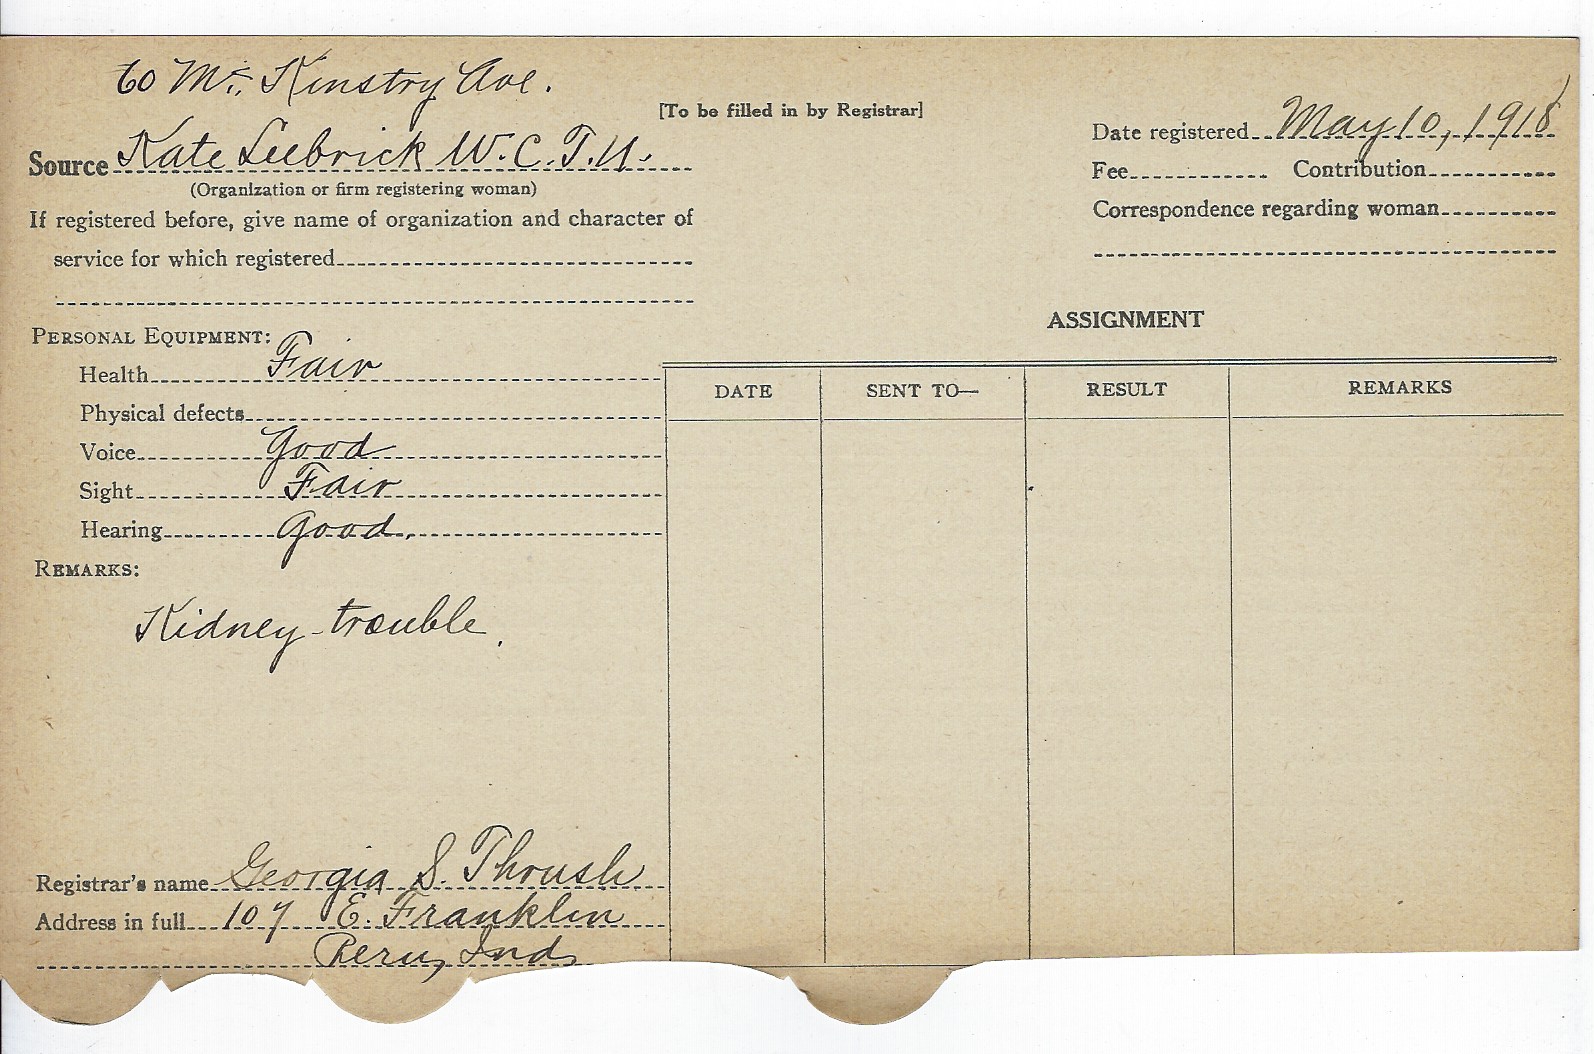 60 Mc. Kinstry Ave.
[To be filled in by Registrar]
Source Kate Leebrick W.C.T.U.
(Organization or firm registering woman)
If registered before, give name of organization and character of
service for which registered
Date registered May 10, 1918
Fee Contribution
Correspondence regarding woman
PERSONAL EQUIPMENT:
Health Fair
Physical defects
Voice Good
Sight Fair
Hearing Good.
REMARKS:
Kidney trouble.
ASSIGNMENT
DATE SENT TO— RESULT REMARKS
Registrar's name Georgia S. Thrush
Address in full 107 E. Franklin
Peru, Ind